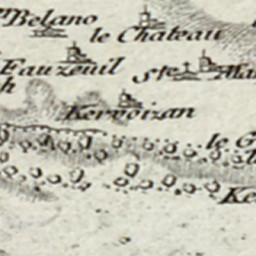 Belano
le Chateau
Fauzeuil
Ste Ma
h
Kervoizan
le G
Ke